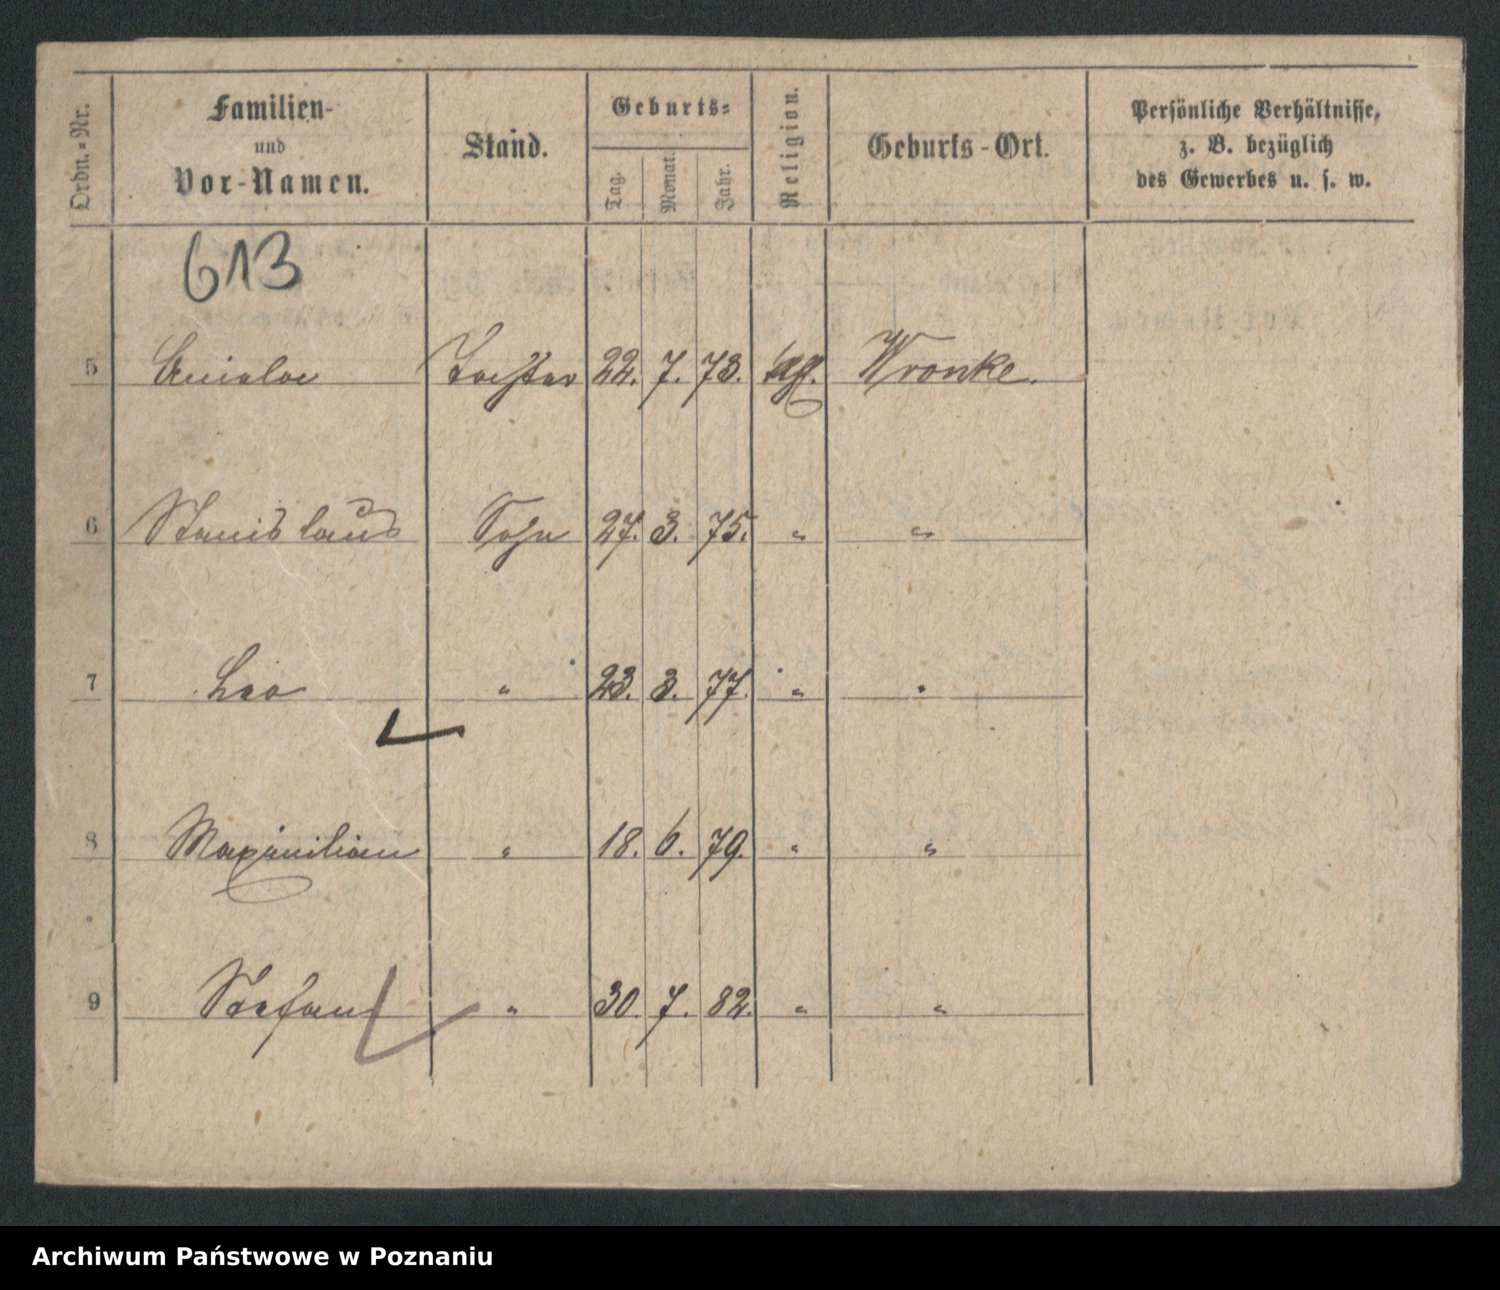 Ordn.-Nr.
Familien-
und
Vor-Namen.
Stand.
Geburts-
Tag.
Monat.
Jahr.
Religion.
Geburts-Ort.
Persönliche Verhältnisse,
z. B. bezüglich
des Gewerbes u. s. w.
613
5 Aniela Tochter 22. 7. 73. Wronke.
6 Stanislaus Sohn 27. 3. 75. " "
7 Leo " 23. 3. 77. " "
8 Maximilian " 18. 6. 79. " "
9 Stefan " 30. 7. 82. " "
Archiwum Państwowe w Poznaniu